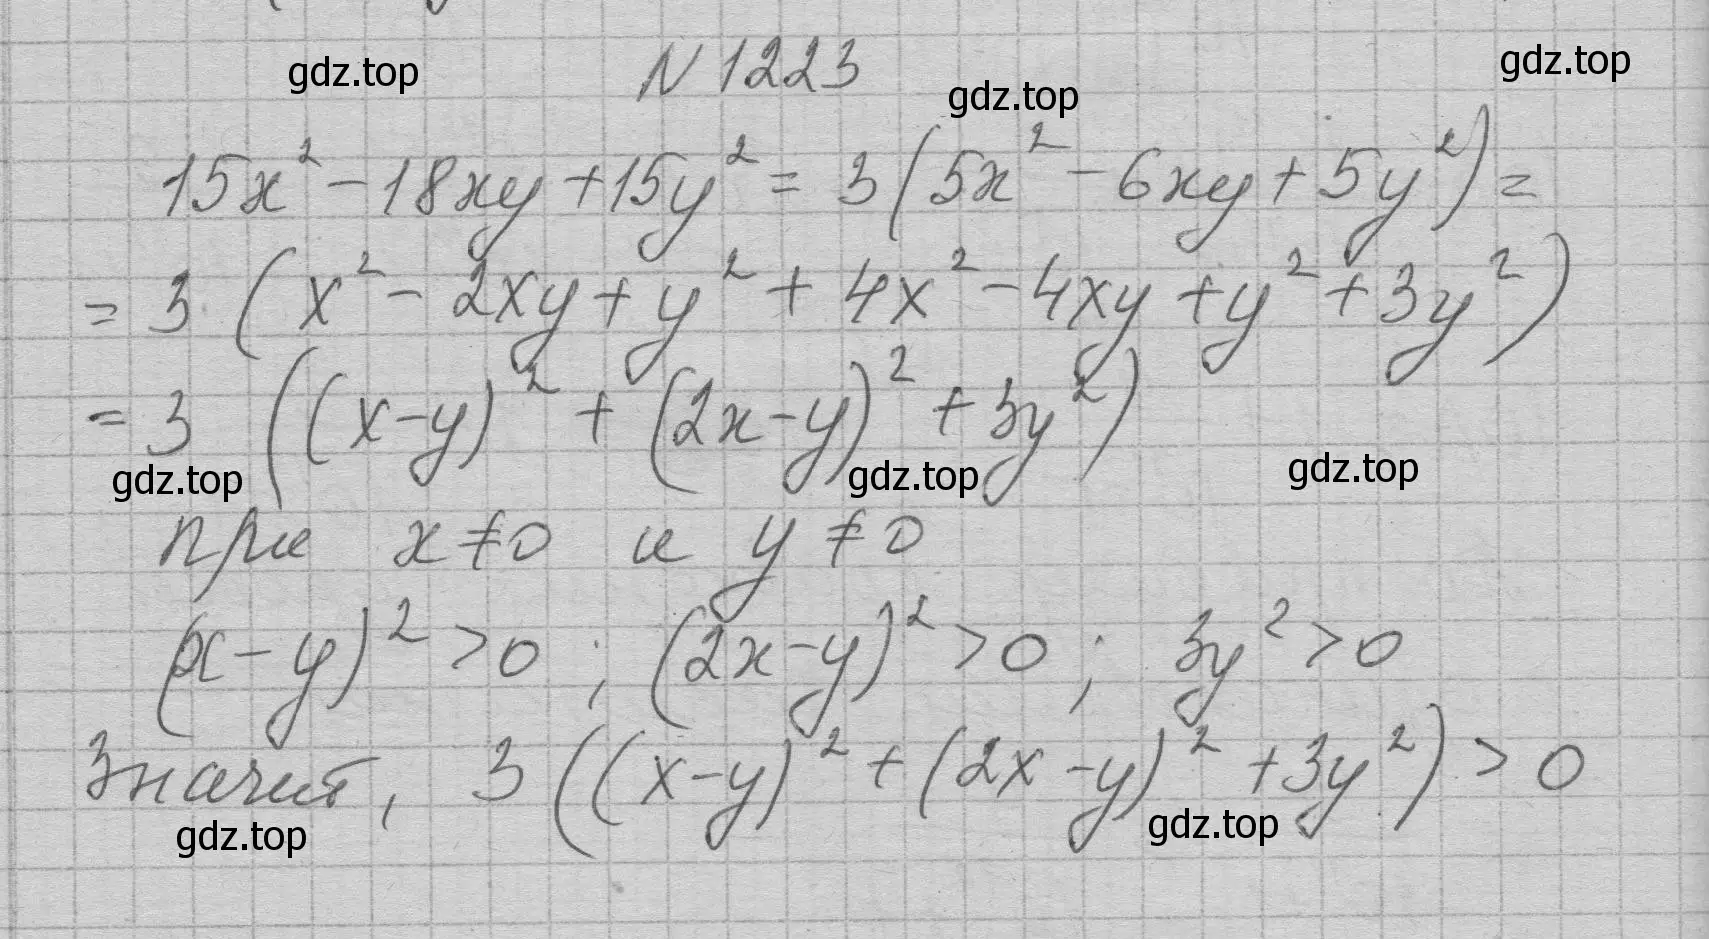 N 1223
gdz.top
gdz.top
gdz.top
15x² - 18xy + 15y² = 3(5x² - 6xy + 5y²) =
= 3 (x² - 2xy + y² + 4x² - 4xy + y² + 3y²)
= 3 ((x-y)² + (2x-y)² + 3y²)
gdz.top
gdz.top
gdz.top
при x≠0 и y≠0
(x-y)² > 0 ; (2x-y)² > 0 ; 3y² > 0
Значит, 3((x-y)² + (2x-y)² + 3y²) > 0
gdz.top
gdz.top